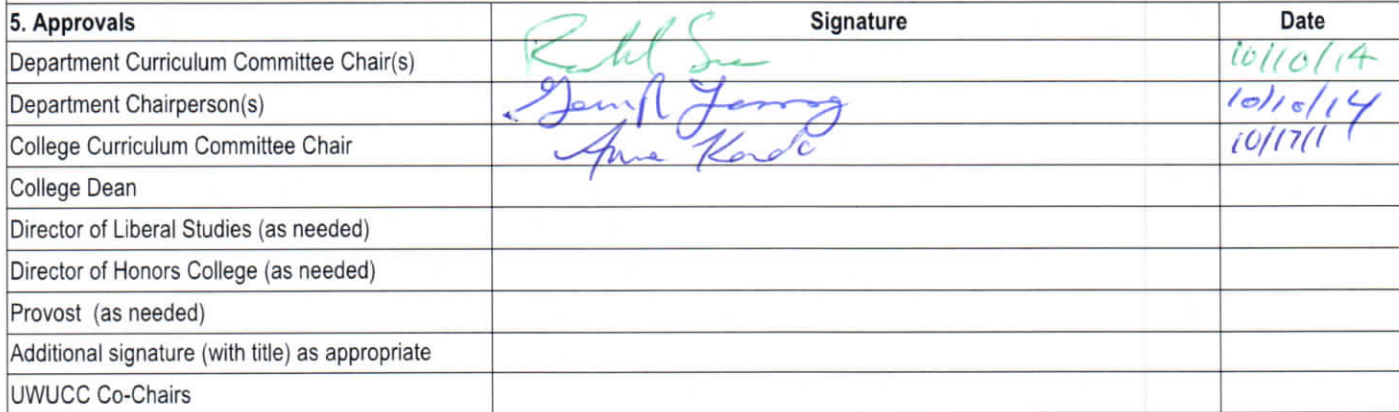 5. Approvals Signature Date
Department Curriculum Committee Chair(s) 10/10/14
Department Chairperson(s) 10/10/14
College Curriculum Committee Chair 10/17/1
College Dean
Director of Liberal Studies (as needed)
Director of Honors College (as needed)
Provost (as needed)
Additional signature (with title) as appropriate
UWUCC Co-Chairs